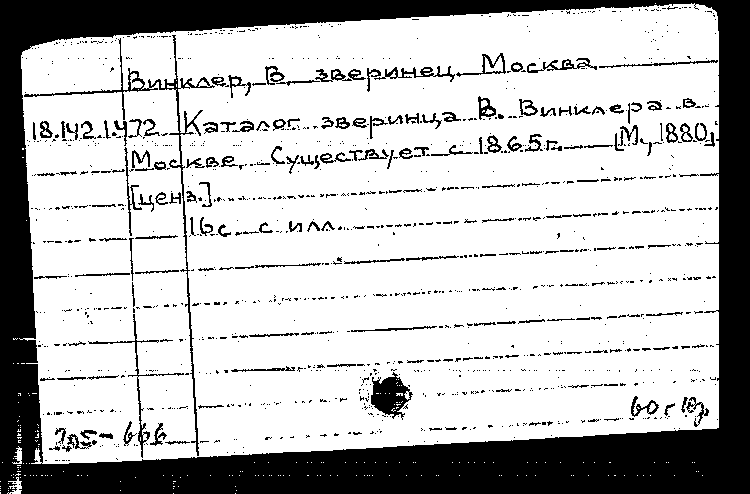 Винклер, В. зверинец. Москва.
18.142.1.472 Каталог зверинца В. Винклера в
Москве. Существует с 1865г. [М., 1880]
[ценз.].
16с. с илл.
666
60г